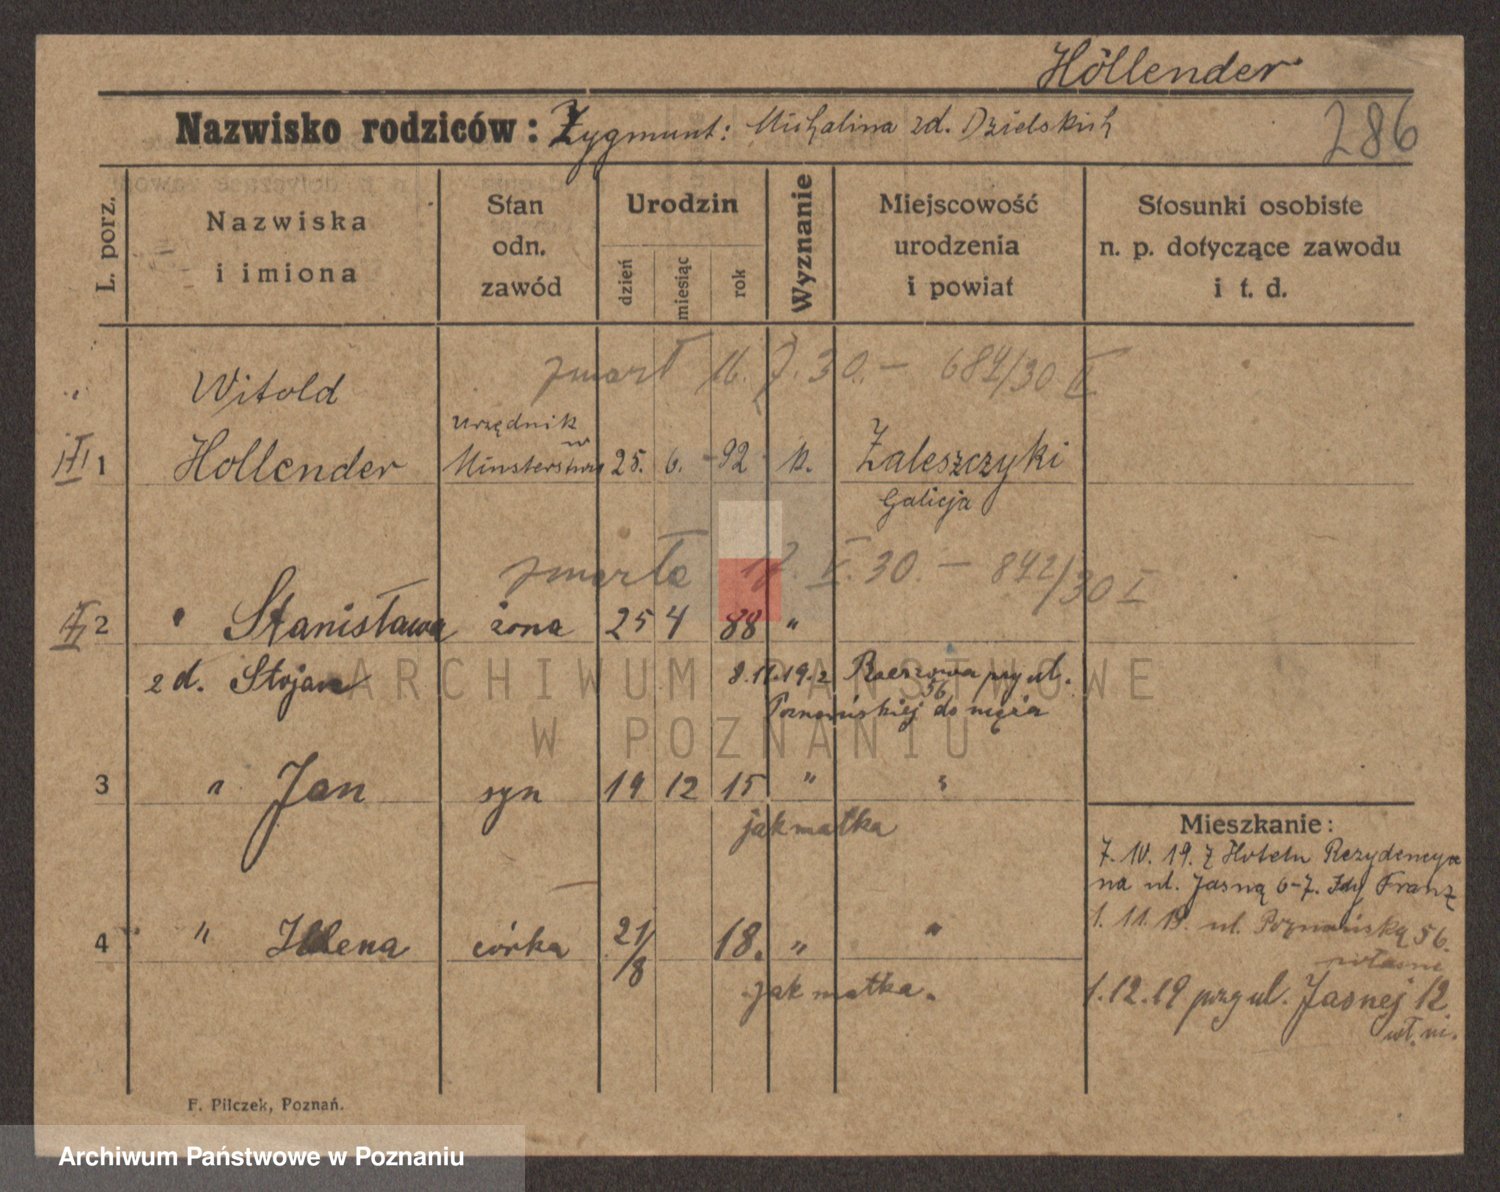 Höllender
Nazwisko rodziców: Zygmunt: Michalina zd. Dzielskich
286
L. porz.
Nazwiska
i imiona
Stan
odn.
zawód
Urodzin
dzień
miesiąc
rok
Wyznanie
Miejscowość
urodzenia
i powiat
Stosunki osobiste
n. p. dotyczące zawodu
i t. d.
zmarł 16. 7. 30. — 684/30 II
Witold
urzędnik
w
1 Hollender 25. 6. 92 Zaleszczyki
Galicja
zmarła V. 30. — 842/30 I
2 " Stanisława żona 25 4 88 "
zd. Stojan przy ul.
56
Poznańskiej do męża
3 " Jan syn 19 12 15 " "
jak matka
Mieszkanie:
7. IV. 19. z Hotelu Rezydencya
na ul. Jasną 6-7. Franz
4 " Helena córka 21/8 18. " "
1. 11. 19. ul. Poznańską 56.
jak matka.
1.12.19 przy ul. Jasnej 12
F. Pilczek, Poznań.
ARCHIWUM PAŃSTWOWE
W POZNANIU
Archiwum Państwowe w Poznaniu